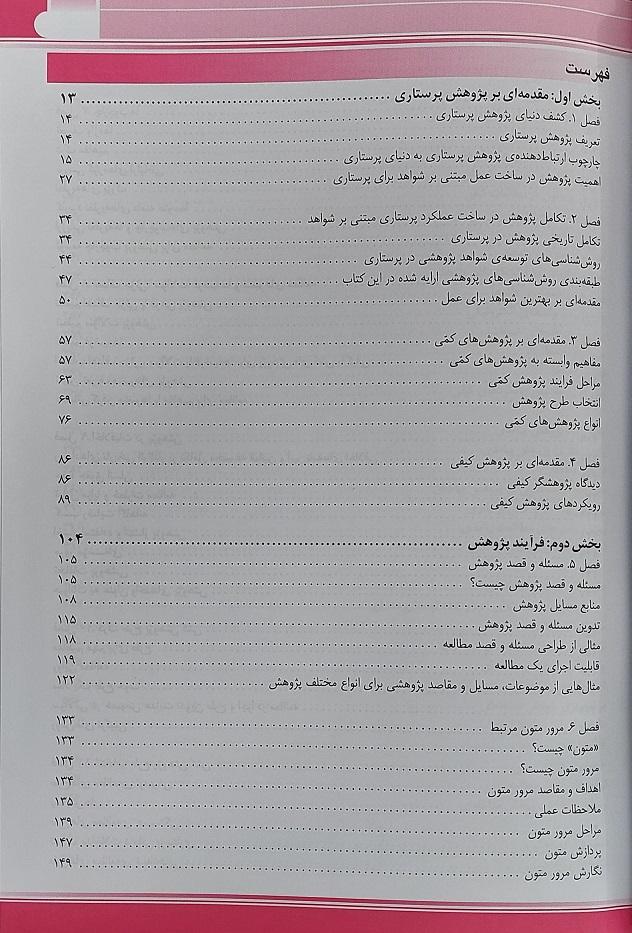 فهرست
بخش اول: مقدمه‌ای بر پژوهش پرستاری ........ ۱۳
فصل ۱. کشف دنیای پژوهش پرستاری ........ ۱۴
تعریف پژوهش پرستاری ........ ۱۴
چارچوب ارتباط‌دهنده‌ی پژوهش پرستاری به دنیای پرستاری ........ ۱۵
اهمیت پژوهش در ساخت عمل مبتنی بر شواهد برای پرستاری ........ ۲۷
فصل ۲. تکامل پژوهش در ساخت عملکرد پرستاری مبتنی بر شواهد ........ ۳۴
تکامل تاریخی پژوهش در پرستاری ........ ۳۴
روش‌شناسی‌های توسعه‌ی شواهد پژوهشی در پرستاری ........ ۴۴
طبقه‌بندی روش‌شناسی‌های پژوهشی ارایه شده در این کتاب ........ ۴۷
مقدمه‌ای بر بهترین شواهد برای عمل ........ ۵۰
فصل ۳. مقدمه‌ای بر پژوهش‌های کمّی ........ ۵۷
مفاهیم وابسته به پژوهش‌های کمّی ........ ۵۷
مراحل فرایند پژوهش کمّی ........ ۶۳
انتخاب طرح پژوهش ........ ۶۹
انواع پژوهش‌های کمّی ........ ۷۶
فصل ۴. مقدمه‌ای بر پژوهش کیفی ........ ۸۶
دیدگاه پژوهشگر کیفی ........ ۸۶
رویکردهای پژوهش کیفی ........ ۸۹
بخش دوم: فرآیند پژوهش ........ ۱۰۴
فصل ۵. مسئله و قصد پژوهش ........ ۱۰۵
مسئله و قصد پژوهش چیست؟ ........ ۱۰۵
منابع مسایل پژوهش ........ ۱۰۸
تدوین مسئله و قصد پژوهش ........ ۱۱۵
مثالی از طراحی مسئله و قصد مطالعه ........ ۱۱۸
قابلیت اجرای یک مطالعه ........ ۱۱۹
مثال‌هایی از موضوعات، مسایل و مقاصد پژوهشی برای انواع مختلف پژوهش ........ ۱۲۲
فصل ۶. مرور متون مرتبط ........ ۱۳۳
«متون» چیست؟ ........ ۱۳۳
مرور متون چیست؟ ........ ۱۳۴
اهداف و مقاصد مرور متون ........ ۱۳۴
ملاحظات عملی ........ ۱۳۵
مراحل مرور متون ........ ۱۳۹
پردازش متون ........ ۱۴۷
نگارش مرور متون ........ ۱۴۹